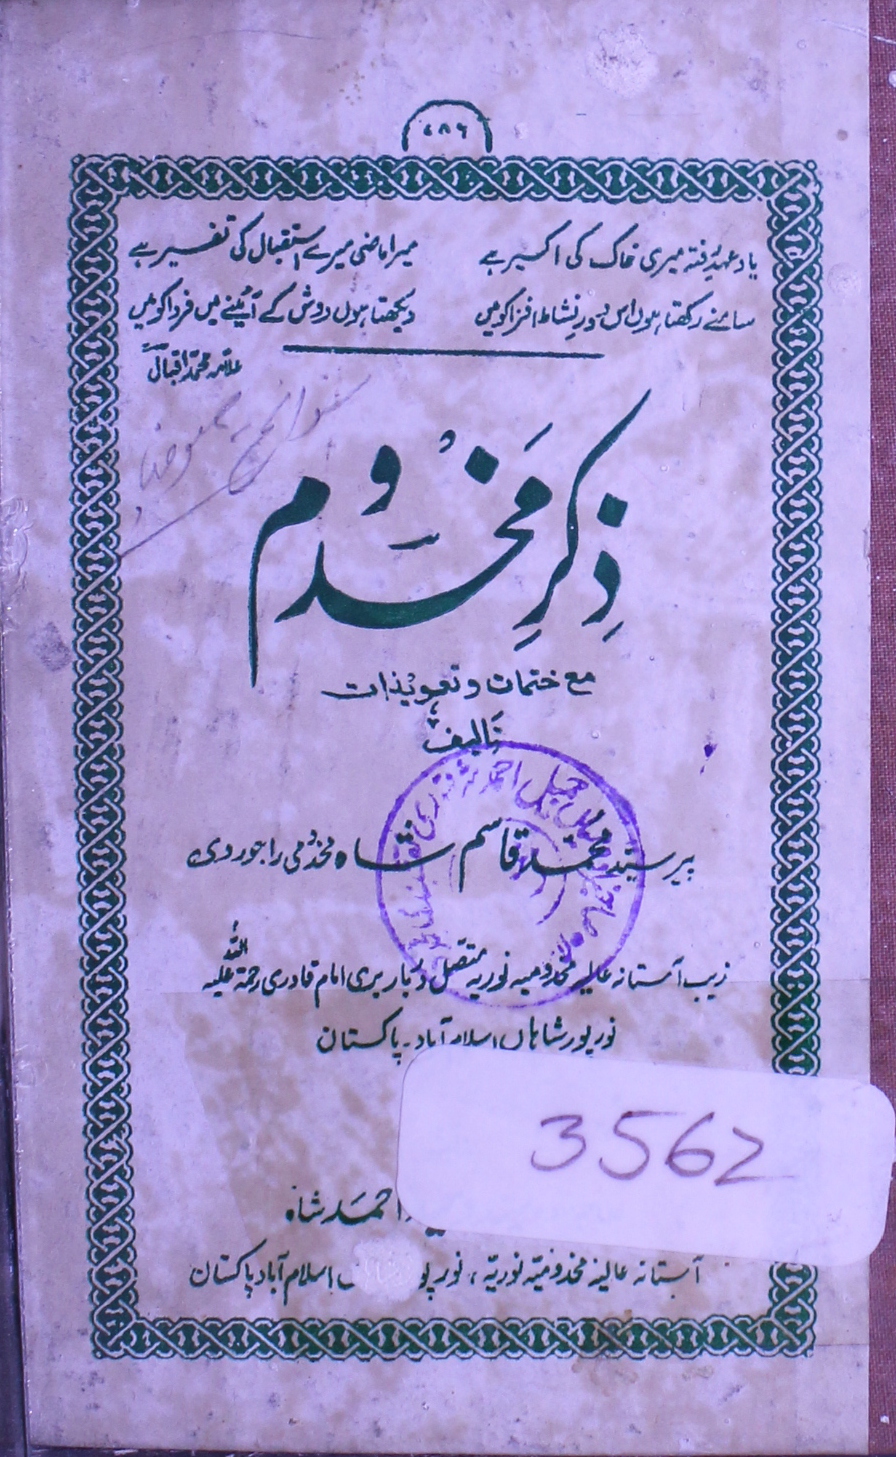 ۷۸۶
یاد عہدِ رفتہ میری خاک کی اکسیر ہے میرا ماضی میرے استقبال کی تفسیر ہے
سامنے رکھتا ہوں اس دورِ نشاط افزا کو میں دیکھتا ہوں دوش کے آئینے میں فردا کو میں
علامہ محمد اقبال
ذِکرِ مَخدُوم
مع ختمات و تعویذات
تالیف
پیر سید محمد قاسم شاہ مخدومی راجوروی
زیب آستانہ عالیہ مخدومیہ نوریہ متصل دربار بری امام قادری رحمۃ اللہ علیہ
نور پور شاہاں اسلام آباد۔ پاکستان
3562
احمد شاہ
آستانہ عالیہ مخدومیہ نوریہ، نور پور اسلام آباد پاکستان